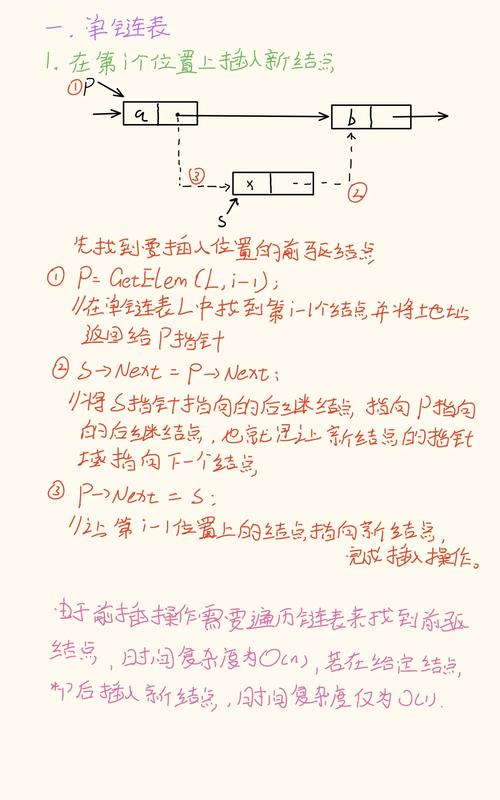 一.单链表
1. 在第i个位置上插入新结点
①P
a
b
③
x
②
S
先找到要插入位置的前驱结点
① P= GetElem(L,i-1);
//在单链表L中找到第i-1个结点并将地址
返回给P指针
② S→Next = P→Next;
//将S指针指向的后继结点指向P指向
的后继结点,也就是让新结点的指针
域指向下一个结点
③ P→Next = S;
//让第i-1位置上的结点指向新结点,
完成插入操作。
由于前插操作需要遍历链表来找到前驱
结点,时间复杂度为O(n),若在给定结点
*P后插入新结点,时间复杂度仅为O(1).